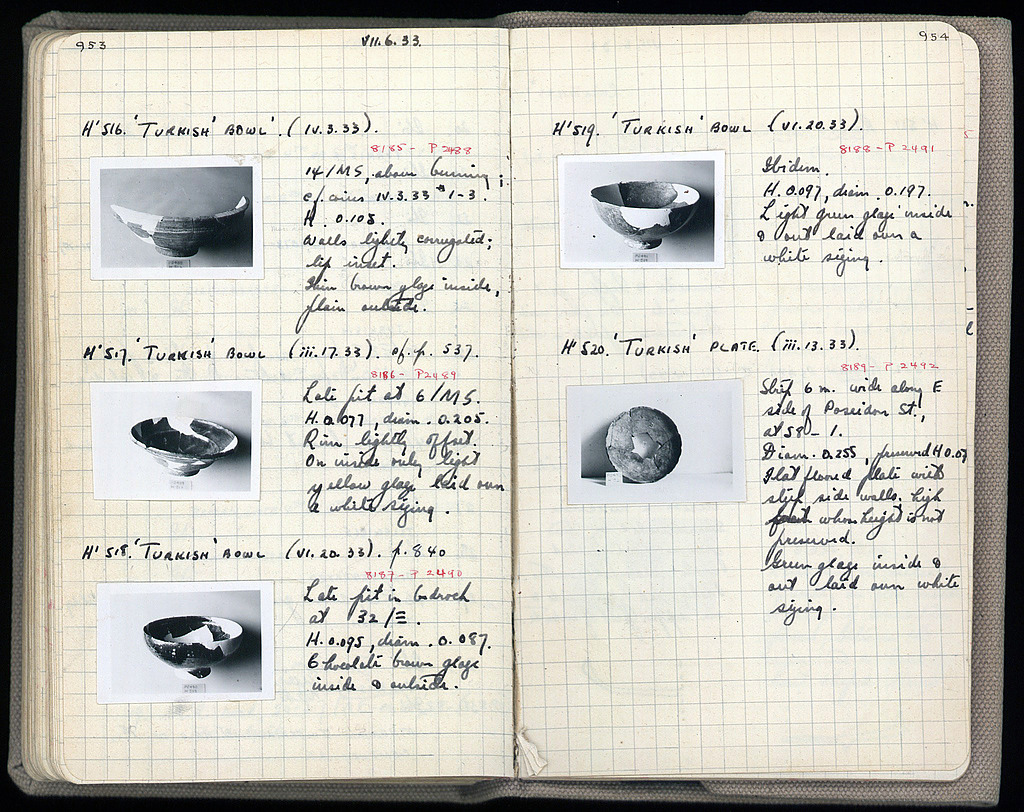 953
VII.6.33.
H'516. 'TURKISH' BOWL'. (IV.3.33).
8185 - P 2488
14/ΜΣ, above burning;
cf. coins IV.3.33 #1-3.
H. 0.108.
Walls lightly corrugated;
lip inset.
Thin brown glaze inside,
plain outside.
H'517. 'TURKISH' BOWL (iii.17.33). cf. p. 537.
8186 - P2489
Late pit at 6/ΜΣ.
H. 0.077, diam. 0.205.
Rim lightly offset.
On inside only light
yellow glaze laid over
a white sizing.
H'518. 'TURKISH' BOWL (VI.20.33). p. 840
8187 - P 2490
Late pit in bedrock
at 32/Ξ.
H. 0.095, diam. 0.087.
Chocolate brown glaze
inside & outside.
954
H'519. 'TURKISH' BOWL (VI.20.33).
8188 - P 2491
Ibidem.
H. 0.097, diam. 0.197.
Light green glaze inside
& out laid over a
white sizing.
H'520. 'TURKISH' PLATE. (iii.13.33).
8189 - P 2492
Strip 6 m. wide along E
side of Poseidon St.,
at 58 - 1.
Diam. 0.255, preserved H 0.07
Flat floored plate with
steep side walls. high
foot whose height is not
preserved.
Green glaze inside &
out laid over white
sizing.